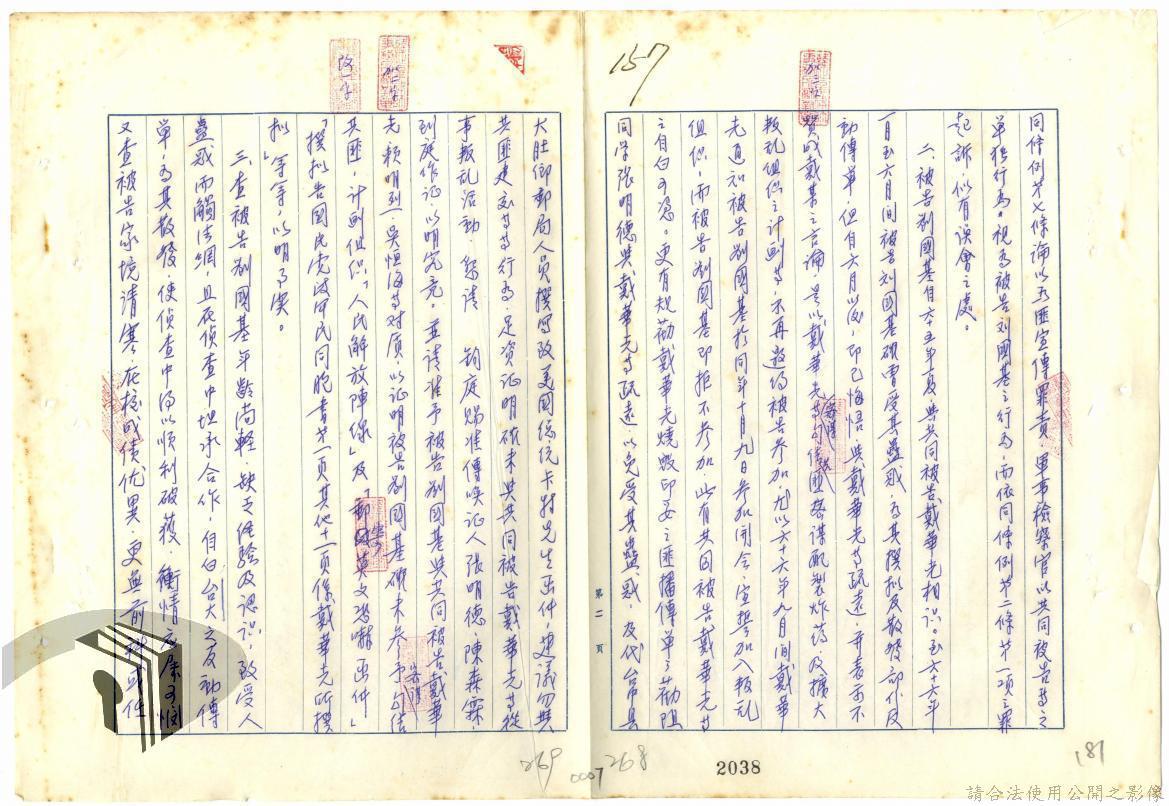 157
加三字
同條例第七條論以為匪宣傳罪責，軍事檢察官以共同被告等之
單獨行為，視為被告刘國基之行為，而依同條例第二條第一項之罪
起訴，似有误會之處。
二、被告刘國基自六十五年度與共同被告戴華光相识。至六十六年
一月至六月間被告刘國基確曾受其蠱惑，為其撰拟及散發部份反
動傳单，但自六月以後，即已悔悟，與戴華光等疏遠，并表示不
贊成戴某之言論，是以戴華光等
謀配製炸药及擴大
叛乱組织之計劃等，不再邀约被告參加，尤以六十六年九月間戴華
光通知被告刘國基於同年十月九日參加開会，宣誓加入叛乱
組织，而被告刘國基即拒不參加，此有共同被告戴華光等
之自白可憑。更有规劝戴華光燒毀印妥之匪播傳单，劝阻
同学張明德與戴華光等疏遠，以免受其蠱惑，及代台中县
第二頁
加二字
改一字
大肚鄉郵局人員撰寫致美國总统卡特先生函件，建議勿與
共匪建交等等行為，足資证明確未與共同被告戴華光等從
事叛乱活动，懇請 鈞庭賜准傳喚证人張明德、陳森霖
到庭作证，以明究竟。並請准予被告刘國基與共同被告戴華
光、賴明烈、吳恒海等对质，以证明被告刘國基確未參予台信
共匪，計劃組织「人民解放陣線」及
函件」
「撰拟告國民党政府軍民同胞書第一頁其他十一頁係戴華光所撰
拟」等等，以明了实。
三、查被告刘國基年齡尚輕，缺乏经验及認识，致受人
蠱惑而觸法網，且在偵查中坦承合作，自白台大之反动傳
单，為其散發，使偵查中得以順利破獲，衡情应属可憫
又查被告家境清寒，在校成绩优異，更無前科
269
0007
268
2038
181
請合法使用公開之影像